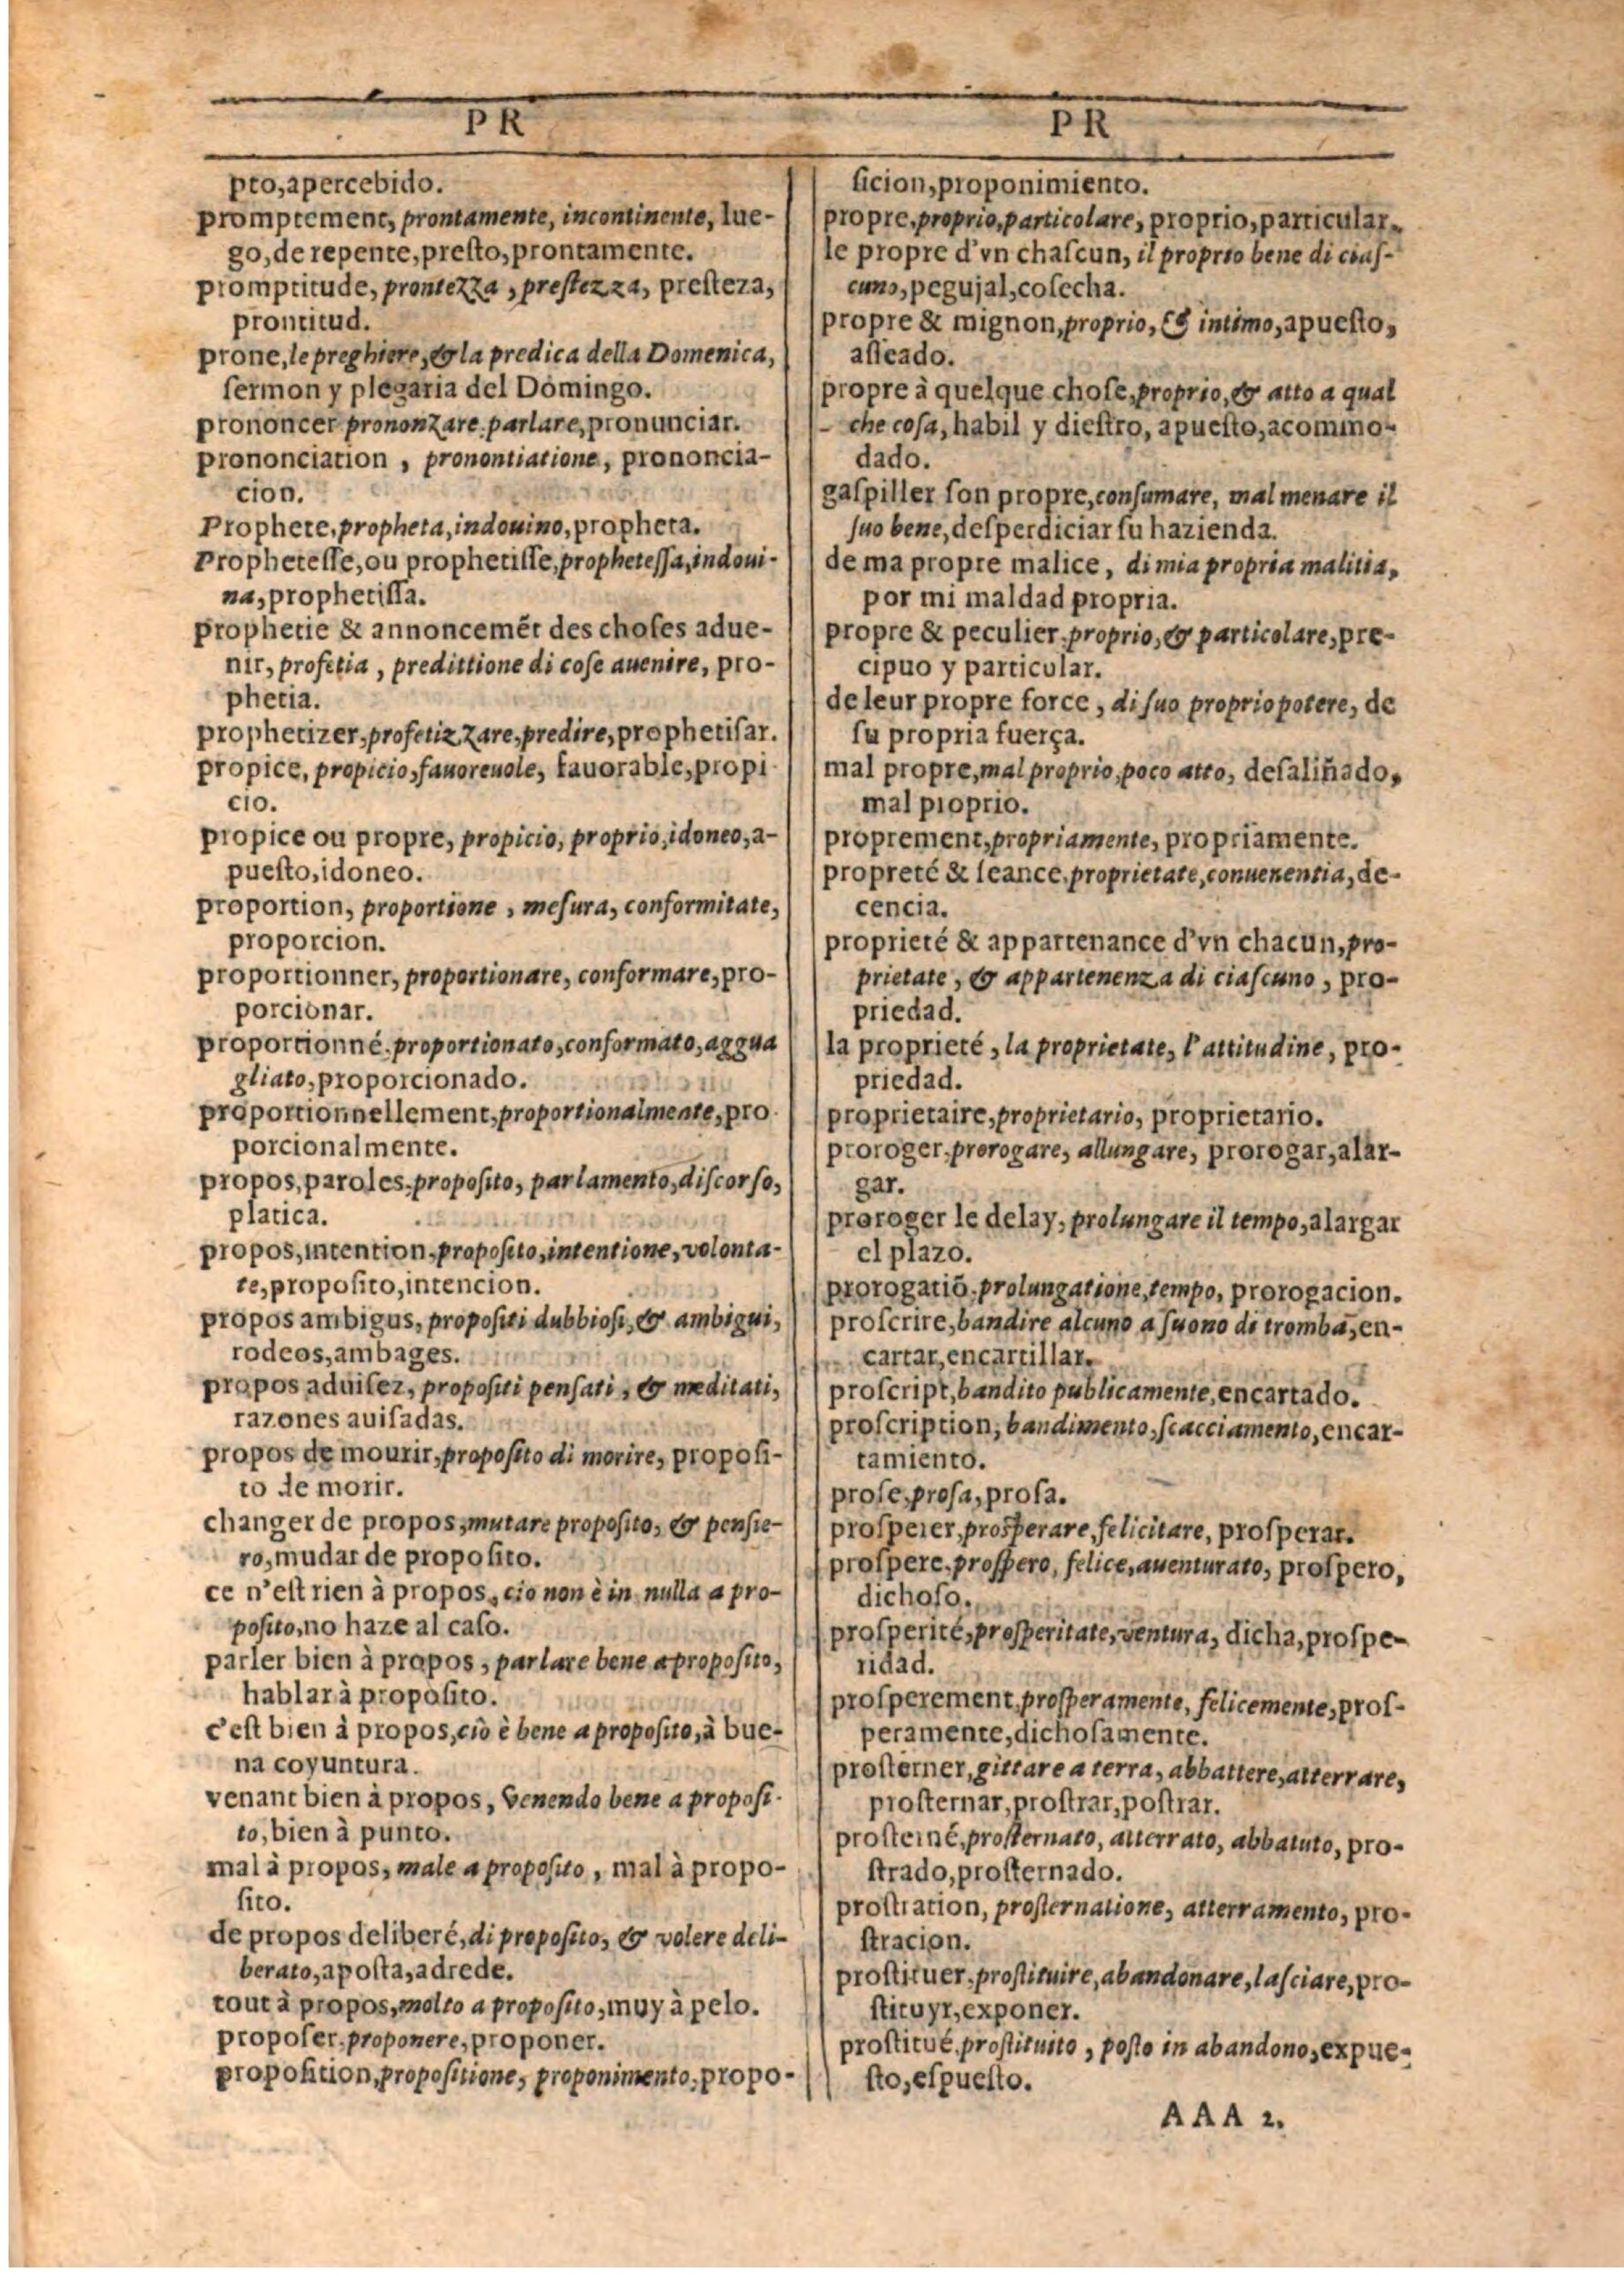 PR
pto,apercebido.
promptement, prontamente, incontinente, lue-
go,de repente,preſto,prontamente.
promptitude, prontezza, preſtezza, preſteza,
prontitud.
prone, le preghiere, & la predica della Domenica,
ſermon y plegaria del Domingo.
prononcer prononzare.parlare,pronunciar.
prononciation , pronontiatione, prononcia-
cion.
Prophete,propheta,indouino,propheta.
Prophetesſe,ou prophetiſſe,propheteſſa,indoui-
na,prophetiſſa.
prophetie & annoncemẽt des choſes adue-
nir, profetia , predittione di coſe auenire, pro-
phetia.
prophetizer,profetizzare,predire,prophetiſar.
propice, propicio,fauoreuole, fauorable,propi
cio.
propice ou propre, propicio, proprio,idoneo,a-
pueſto,idoneo.
proportion, proportione , meſura, conformitate,
proporcion.
proportionner, proportionare, conformare,pro-
porcionar.
proportionné.proportionato,conformato,aggua
gliato,proporcionado.
proportionnellement,proportionalmente,pro
porcionalmente.
propos,paroles.propoſito, parlamento,diſcorſo,
platica.
propos,intention.propoſito,intentione,volonta-
te,propoſito,intencion.
propos ambigus, propoſiti dubbioſi, & ambigui,
rodeos,ambages.
propos aduiſez, propoſiti penſati, & meditati,
razones auiſadas.
propos de mourir,propoſito di morire, propoſi-
to de morir.
changer de propos,mutare propoſito, & penſie-
ro,mudar de propoſito.
ce n'eſt rien à propos, cio non è in nulla a pro-
poſito,no haze al caſo.
parler bien à propos, parlare bene a propoſito,
hablar à propoſito.
c'eſt bien à propos,ciò è bene a propoſito,à bue-
na coyuntura.
venant bien à propos, Venendo bene a propoſi-
to,bien à punto.
mal à propos, male a propoſito , mal à propo-
ſito.
de propos deliberé,di propoſito, & volere deli-
berato,apoſta,adrede.
tout à propos,molto a propoſito,muy à pelo.
propoſer.proponere,proponer.
propoſition,propoſitione, proponimento,propo-
PR
ſicion,proponimiento.
propre,proprio,particolare, proprio,particular.
le propre d'vn chaſcun, il proprio bene di ciaſ-
cuno,pegujal,coſecha.
propre & mignon,proprio, & intimo,apueſto,
aſſeado.
propre à quelque choſe,proprio, & atto a qual
che coſa, habil y dieſtro, apueſto,acommo-
dado.
gaſpiller ſon propre,conſumare, mal menare il
ſuo bene,deſperdiciar ſu hazienda.
de ma propre malice, di mia propria malitia,
por mi maldad propria.
propre & peculier.proprio, & particolare,pre-
cipuo y particular.
de leur propre force , di ſuo proprio potere, de
ſu propria fuerça.
mal propre,mal proprio,poco atto, deſaliñado,
mal proprio.
proprement,propriamente, propriamente.
propreté & ſeance.proprietate,conuenentia, de-
cencia.
proprieté & appartenance d'vn chacun,pro-
prietate , & appartenenza di ciaſcuno , pro-
priedad.
la proprieté , la proprietate, l'attitudine, pro-
priedad.
proprietaire,proprietario, proprietario.
proroger.prorogare, allungare, prorogar,alar-
gar.
proroger le delay, prolungare il tempo,alargar
el plazo.
prorogatiõ.prolungatione,tempo, prorogacion.
proſcrire,bandire alcuno a ſuono di tromba,en-
cartar,encartillar.
proſcript,bandito publicamente,encartado.
proſcription, bandimento,ſcacciamento,encar-
tamiento.
proſe.proſa,proſa.
proſperer,proſperare,felicitare, proſperar.
proſpere.proſpero, felice,auenturato, proſpero,
dichoſo.
proſperité,proſperitate,ventura, dicha,proſpe-
ridad.
proſperement.proſperamente, felicemente,proſ-
peramente,dichoſamente.
proſterner,gittare a terra, abbattere,atterrare,
proſternar,proſtrar,poſtrar.
proſterné,proſternato, atterrato, abbatuto, pro-
ſtrado,proſternado.
proſtration, proſternatione, atterramento, pro-
ſtracion.
proſtituer.proſtituire,abandonare,laſciare,pro-
ſtituyr,exponer.
proſtitué.proſtituito , poſto in abandono,expue-
ſto,eſpueſto.
AAA 2.